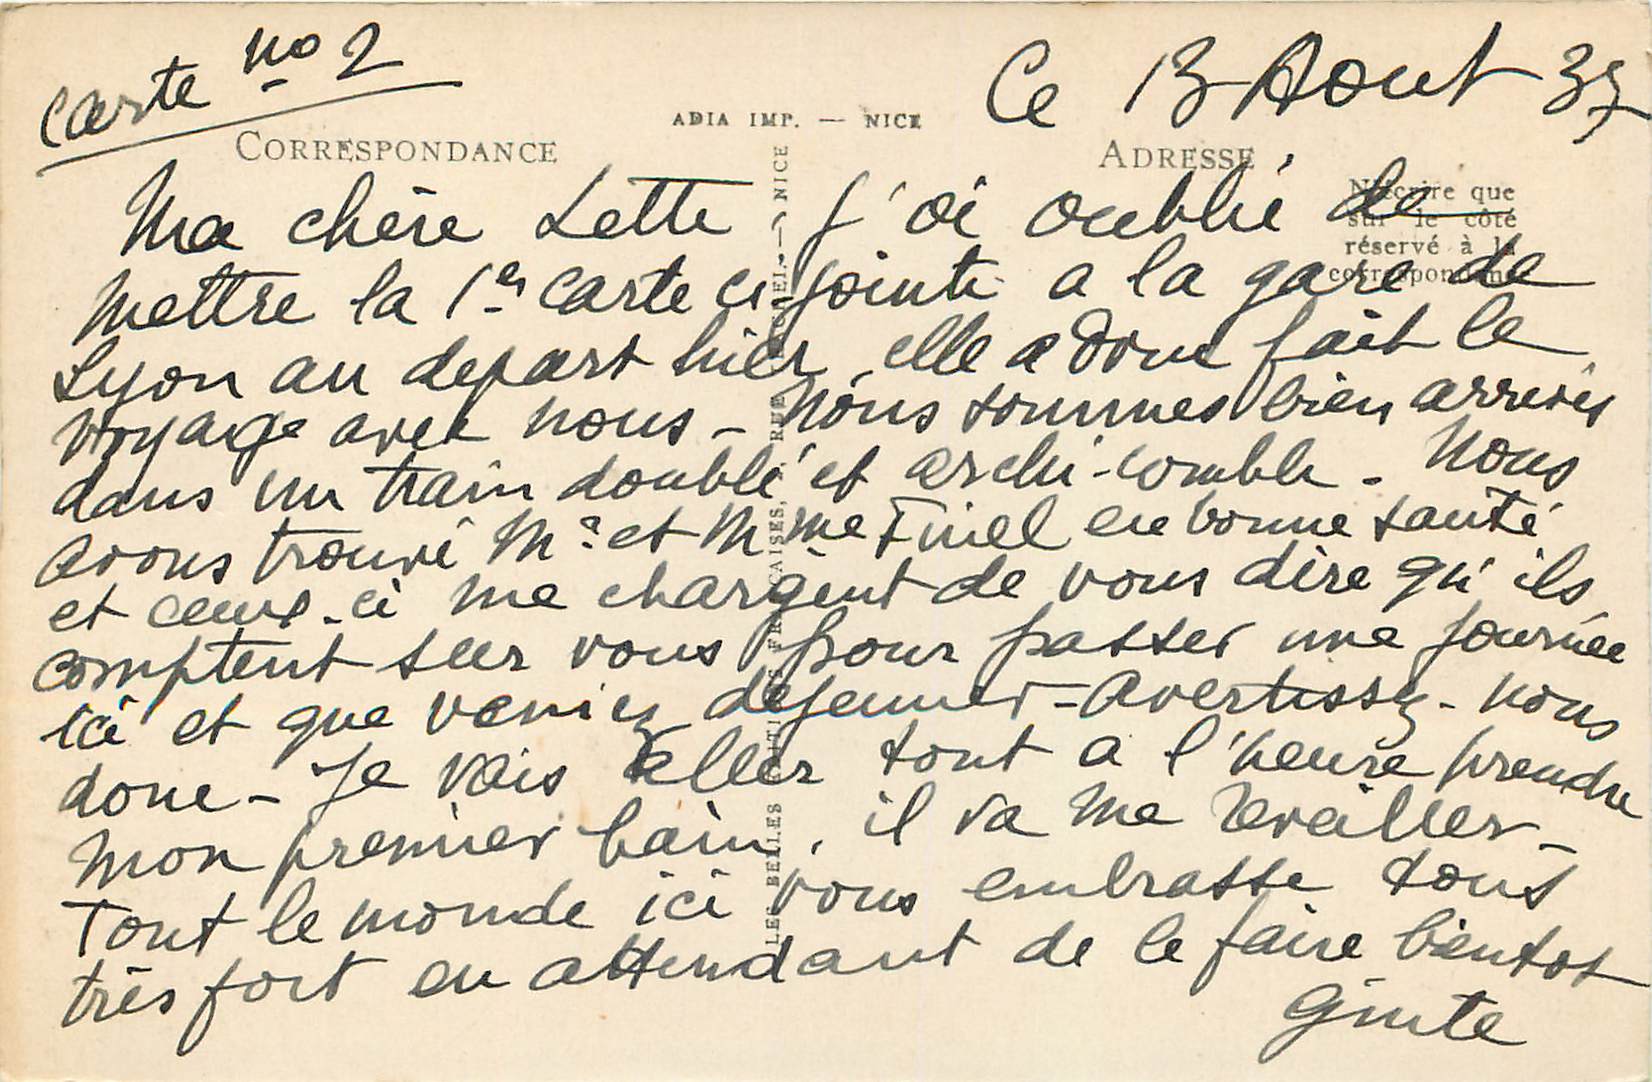 Carte no 2
Ce 13 Aout 37
ADIA IMP. — NICE
CORRESPONDANCE
ADRESSE
N'écrire que
sur le côté
réservé à la
correspondance
Ma chère Lette J'ai oublié de
mettre la 1er carte ci-jointe a la gare de
Lyon au depart hier, elle a donc fait le
voyage avec nous – Nous sommes bien arrivés
dans un train doublé et archi-comble. Nous
avons trouvé Mr et Mme Finel en bonne santé
et ceux-ci me chargent de vous dire qu'ils
comptent sur vous pour passer une journée
ici et que veniez dejeuner – Avertissez-nous
donc – Je vais aller tout a l'heure prendre
mon premier bain, il va me reveiller –
Tout le monde ici vous embrasse tous
très fort en attendant de le faire bientot
Ginte
LES BELLES ÉDITIONS FRANÇAISES, RUE — NICE